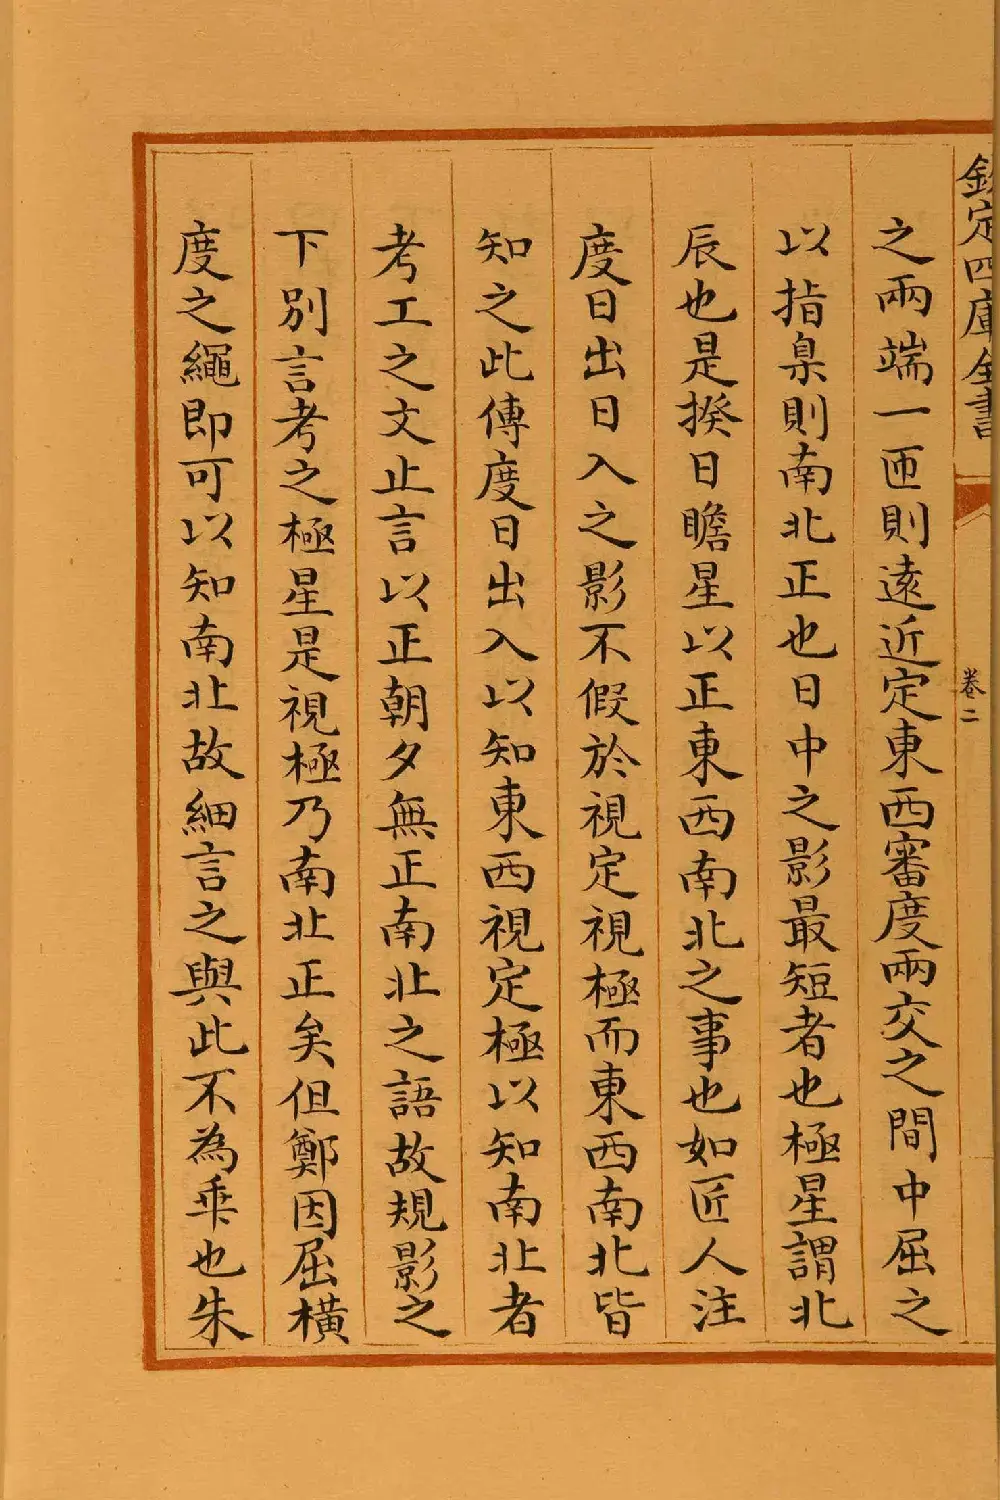 欽定四庫全書
卷二
之兩端一匝則遠近定東西審度兩交之間中屈之
以指臬則南北正也日中之影最短者也極星謂北
辰也是揆日瞻星以正東西南北之事也如匠人注
度日出日入之影不假於視定視極而東西南北皆
知之此傳度日出入以知東西視定極以知南北者
考工之文止言以正朝夕無正南北之語故規影之
下別言考之極星是視極乃南北正矣但鄭因屈橫
度之繩即可以知南北故細言之與此不為乖也朱